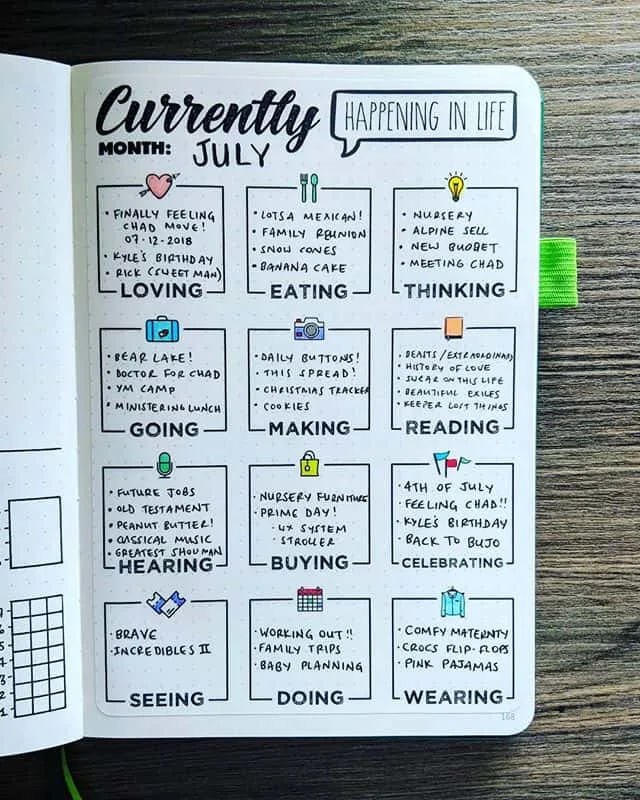 Currently
HAPPENING IN LIFE
MONTH: JULY
• FINALLY FEELING
CHAD MOVE!
07·12·2018
• KYLE'S BIRTHDAY
• RICK (SWEET MAN)
LOVING
• LOTSA MEXICAN!
• FAMILY REUNION
• SNOW CONES
• BANANA CAKE
EATING
• NURSERY
• ALPINE SELL
• NEW BUDGET
• MEETING CHAD
THINKING
• BEAR LAKE!
• DOCTOR FOR CHAD
• YM CAMP
• MINISTERING LUNCH
GOING
• DAILY BUTTONS!
• THIS SPREAD!
• CHRISTMAS TRACKER
• COOKIES
MAKING
• BEASTS/EXTRAORDINARY
• HISTORY OF LOVE
• SUGAR ON THIS LIFE
• BEAUTIFUL EXILES
• KEEPER LOST THINGS
READING
• FUTURE JOBS
• OLD TESTAMENT
• PEANUT BUTTER!
• CLASSICAL MUSIC
• GREATEST SHOWMAN
HEARING
• NURSERY FURNITURE
• PRIME DAY!
· 4X SYSTEM
· STROLLER
BUYING
• 4TH OF JULY
• FEELING CHAD!!
• KYLE'S BIRTHDAY
• BACK TO BUJO
CELEBRATING
• BRAVE
• INCREDIBLES II
SEEING
• WORKING OUT!!
• FAMILY TRIPS
• BABY PLANNING
DOING
• COMFY MATERNTY
• CROCS FLIP-FLOPS
• PINK PAJAMAS
WEARING
168
6
5
4
3
2
1